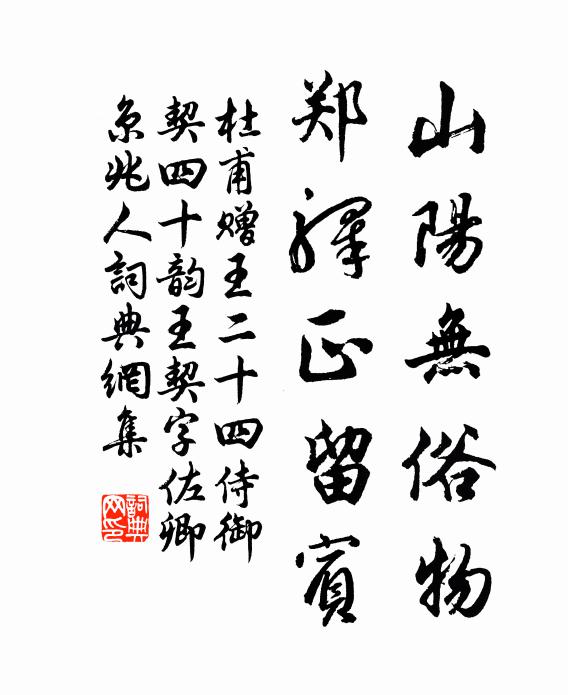 山陽無俗物
郑驛正留賓
杜甫赠王二十四侍御
契四十韵王契字佐卿
京兆人詞典網集
詞典
网印